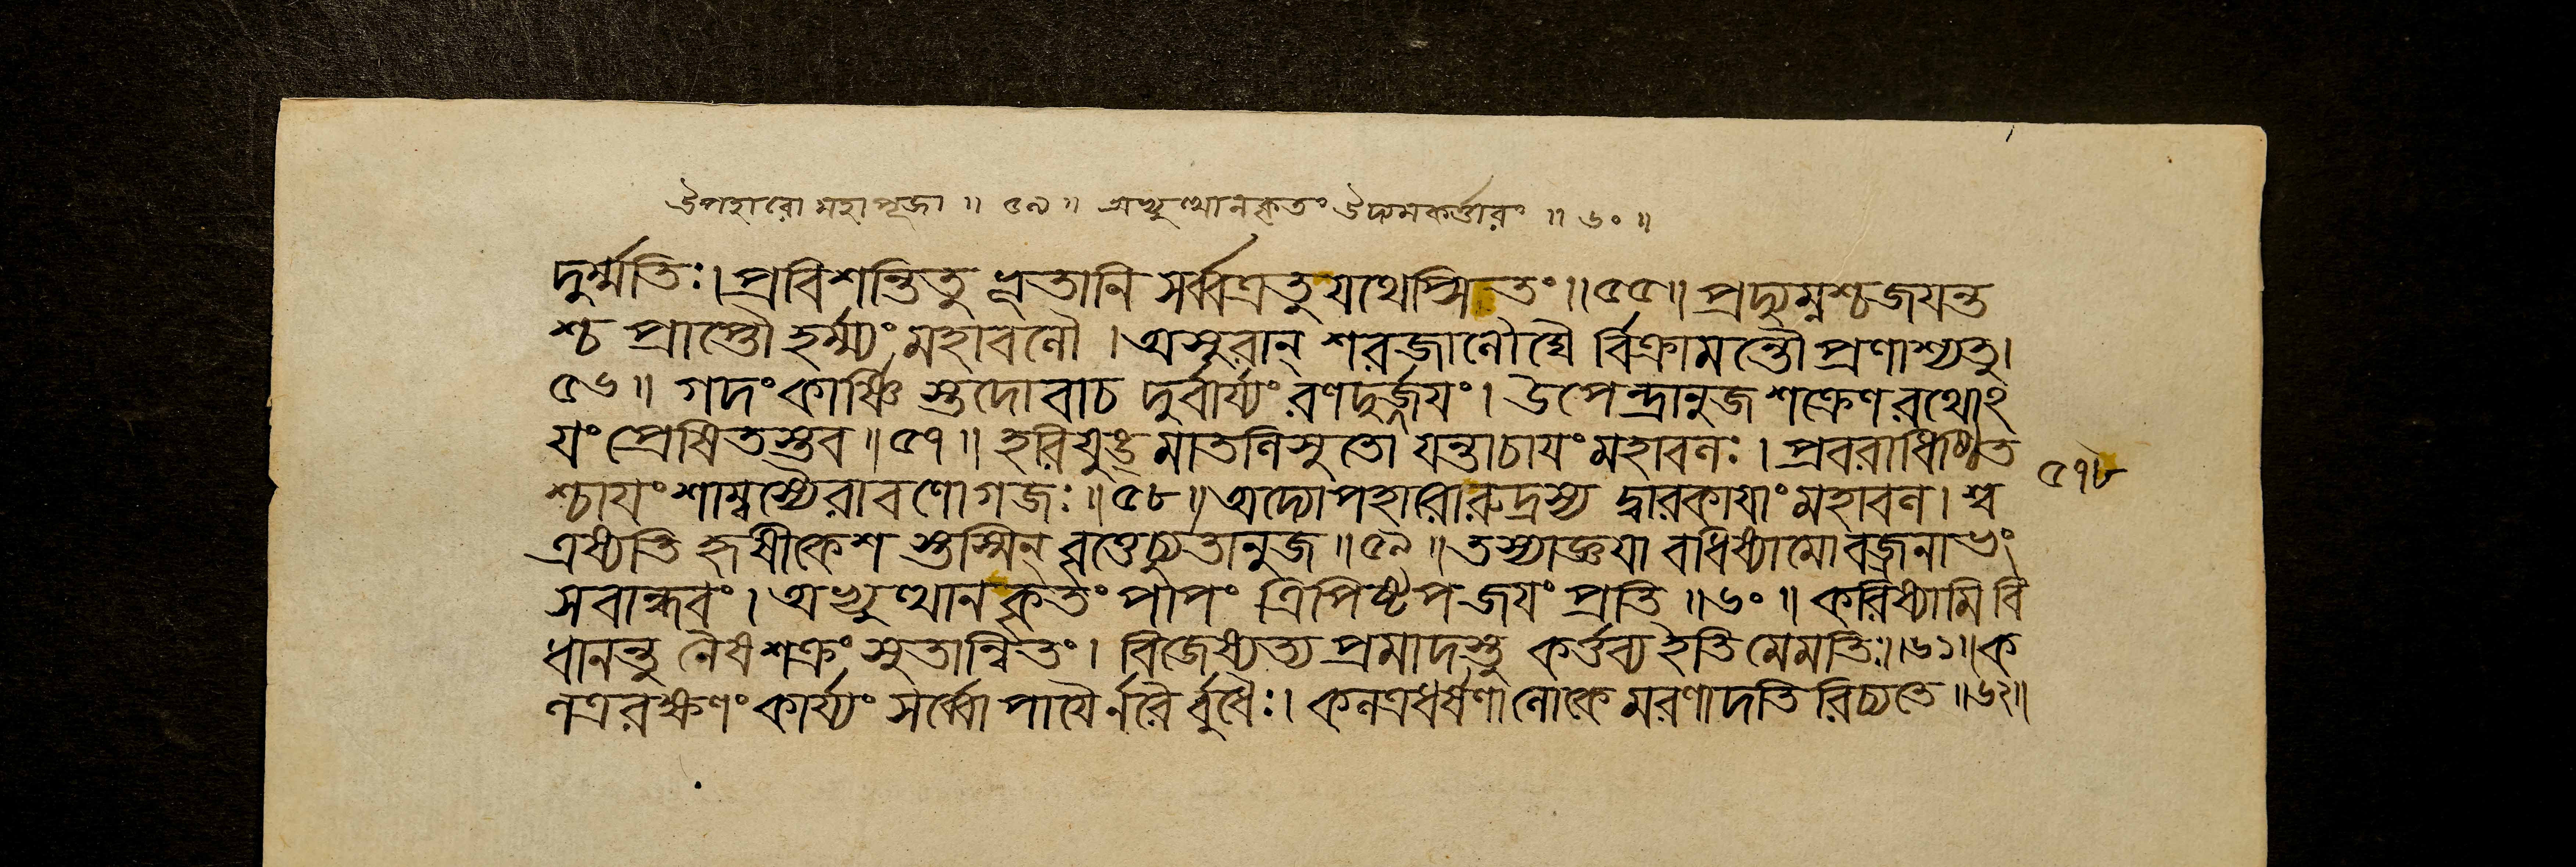 উপহারো মহাপূজা ॥ ৫৯ ॥ অভ্যুত্থানকৃতং উদ্যমকর্ত্তারং ॥ ৬০ ॥
দুর্ম্মতিঃ। প্রবিশন্তি তু এতানি সর্ব্বত্র তু যথেপ্সিতং ॥ ৫৫ ॥ প্রদ্যুম্নশ্চ জয়ন্ত
শ্চ প্রাপ্তৌ হর্ম্ম্যং মহাবলৌ । অসুরান্ শরজালৌঘৈ র্বিক্রামন্তৌ প্রণাশ্যতু।
৫৬ ॥ গদং কার্ষ্ণি স্তদোবাচ দুর্বার্য্যং রণদুর্জ্জয়ং। উপেন্দ্রানুজ শক্রেণ রথোঽ
য়ং প্রেষিতস্তব ॥ ৫৭ ॥ হরিযুঙ্ মাতলিসুতো যন্তা চায়ং মহাবলঃ । প্রবরাধিষ্ঠিত
শ্চায়ং শাম্বস্যৈরাবণো গজঃ ॥ ৫৮ ॥ অদ্যোপহারো রুদ্রস্য দ্বারকায়াং মহাবল । শ্ব
এষ্যতি হৃষীকেশ স্তস্মিন্ বৃত্তেচ্যুতানুজ ॥ ৫৯ ॥ তস্যাজ্ঞয়া বধিষ্যামো বজ্রনাভং
সবান্ধবং । অভ্যুত্থানকৃতং পাপং ত্রিপিষ্টপজয়ং প্রতি ॥ ৬০ ॥ করিষ্যামি বি
ধানন্তু নৈষ শক্রং সুতান্বিতং । বিজেষ্যত্য প্রমাদস্তু কর্ত্তব্য ইতি মে মতিঃ ॥ ৬১ ॥ ক
লত্র রক্ষণং কার্য্যং সর্ব্বোপায়ৈর্নরৈ র্বুধৈঃ। কলত্র ধর্ষণা লোকে মরণাদতিরিচ্যতে ॥ ৬২ ॥
৫৭৮